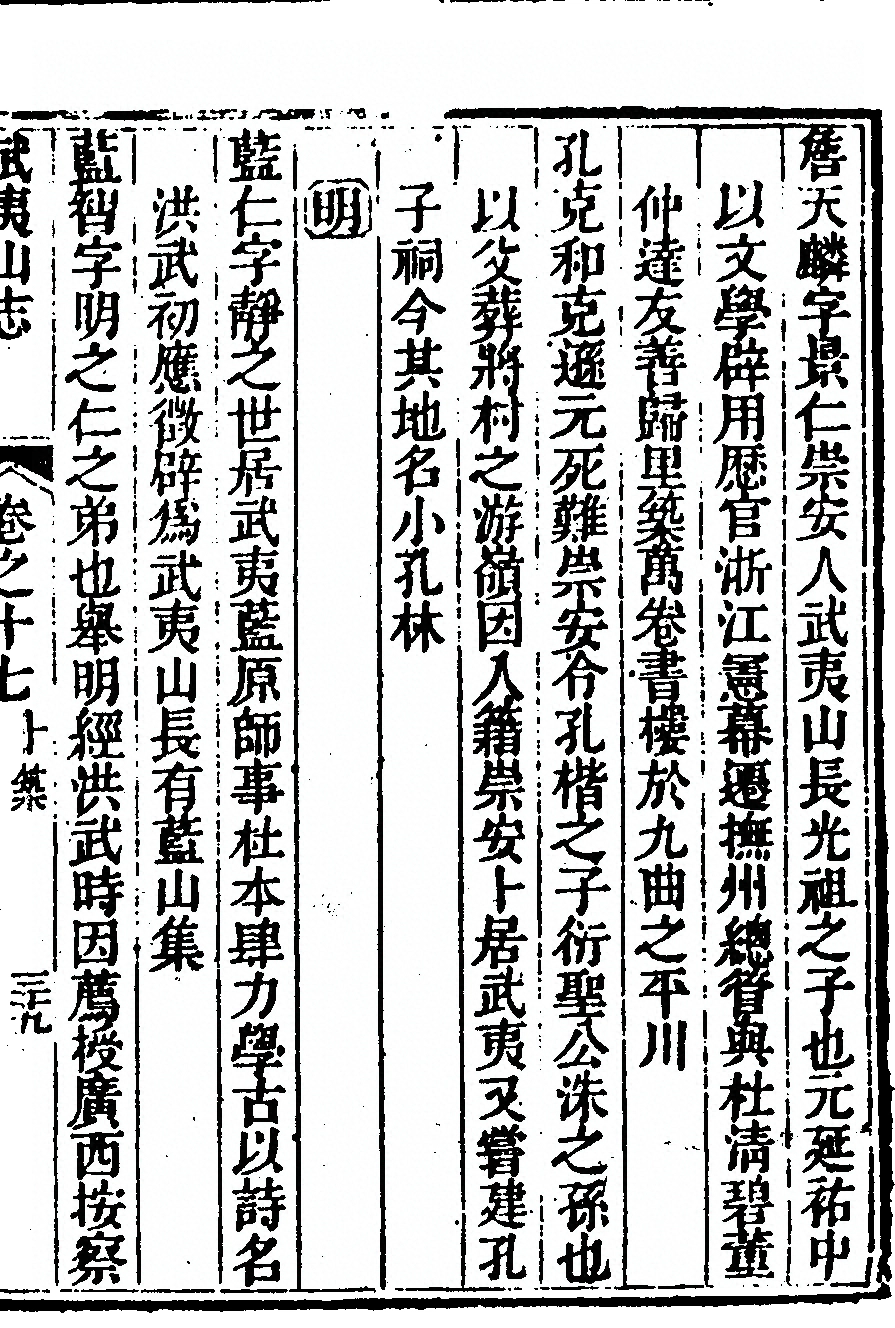 詹天麟字景仁崇安人武夷山長光祖之子也元延祐中
以文學辟用歷官浙江憲幕遷撫州總管與杜清碧董
仲達友善歸里築萬卷書樓於九曲之平川
孔克和克遜元死難崇安令孔楷之子衍聖公洙之孫也
以父葬將村之游嶺因入籍崇安卜居武夷又嘗建孔
子祠今其地名小孔林
明
藍仁字靜之世居武夷藍原師事杜本肆力學古以詩名
洪武初應徵辟爲武夷山長有藍山集
藍智字明之仁之弟也舉明經洪武時因薦授廣西按察
武夷山志 卷之十七 卜築 三十九